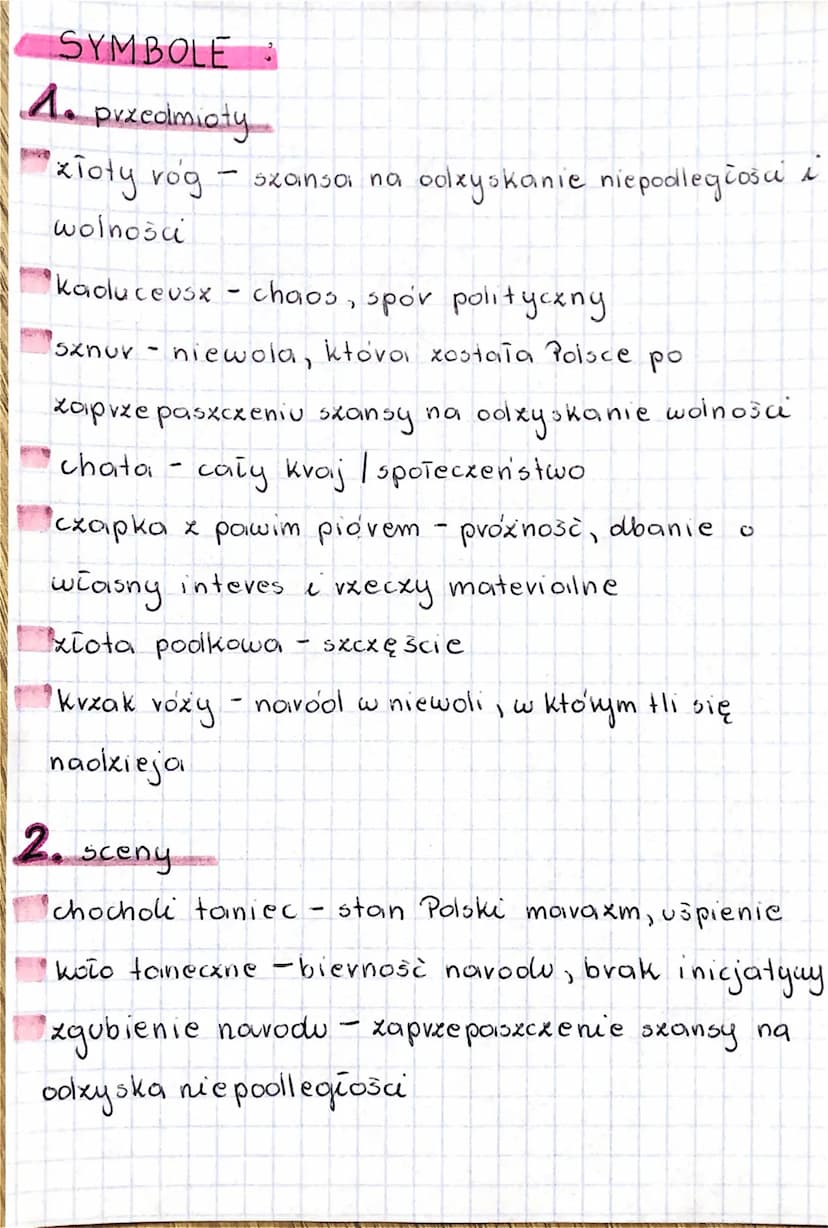 SYMBOLE :
1. przedmioty
złoty róg – szansa na odzyskanie niepodległości i
wolności
kaduceusz – chaos, spór polityczny
sznur – niewola, która została Polsce po
zaprzepaszczeniu szansy na odzyskanie wolności
chata – cały kraj / społeczeństwo
czapka z pawim piórem – próżność, dbanie o
własny interes i rzeczy materialne
złota podkowa – szczęście
krzak róży – naród w niewoli, w którym tli się
nadzieja
2. sceny
chocholi taniec – stan Polski marazm, uśpienie
koło taneczne – bierność narodu, brak inicjatywy
zgubienie narodu – zaprzepaszczenie szansy na
odzyska niepodległości